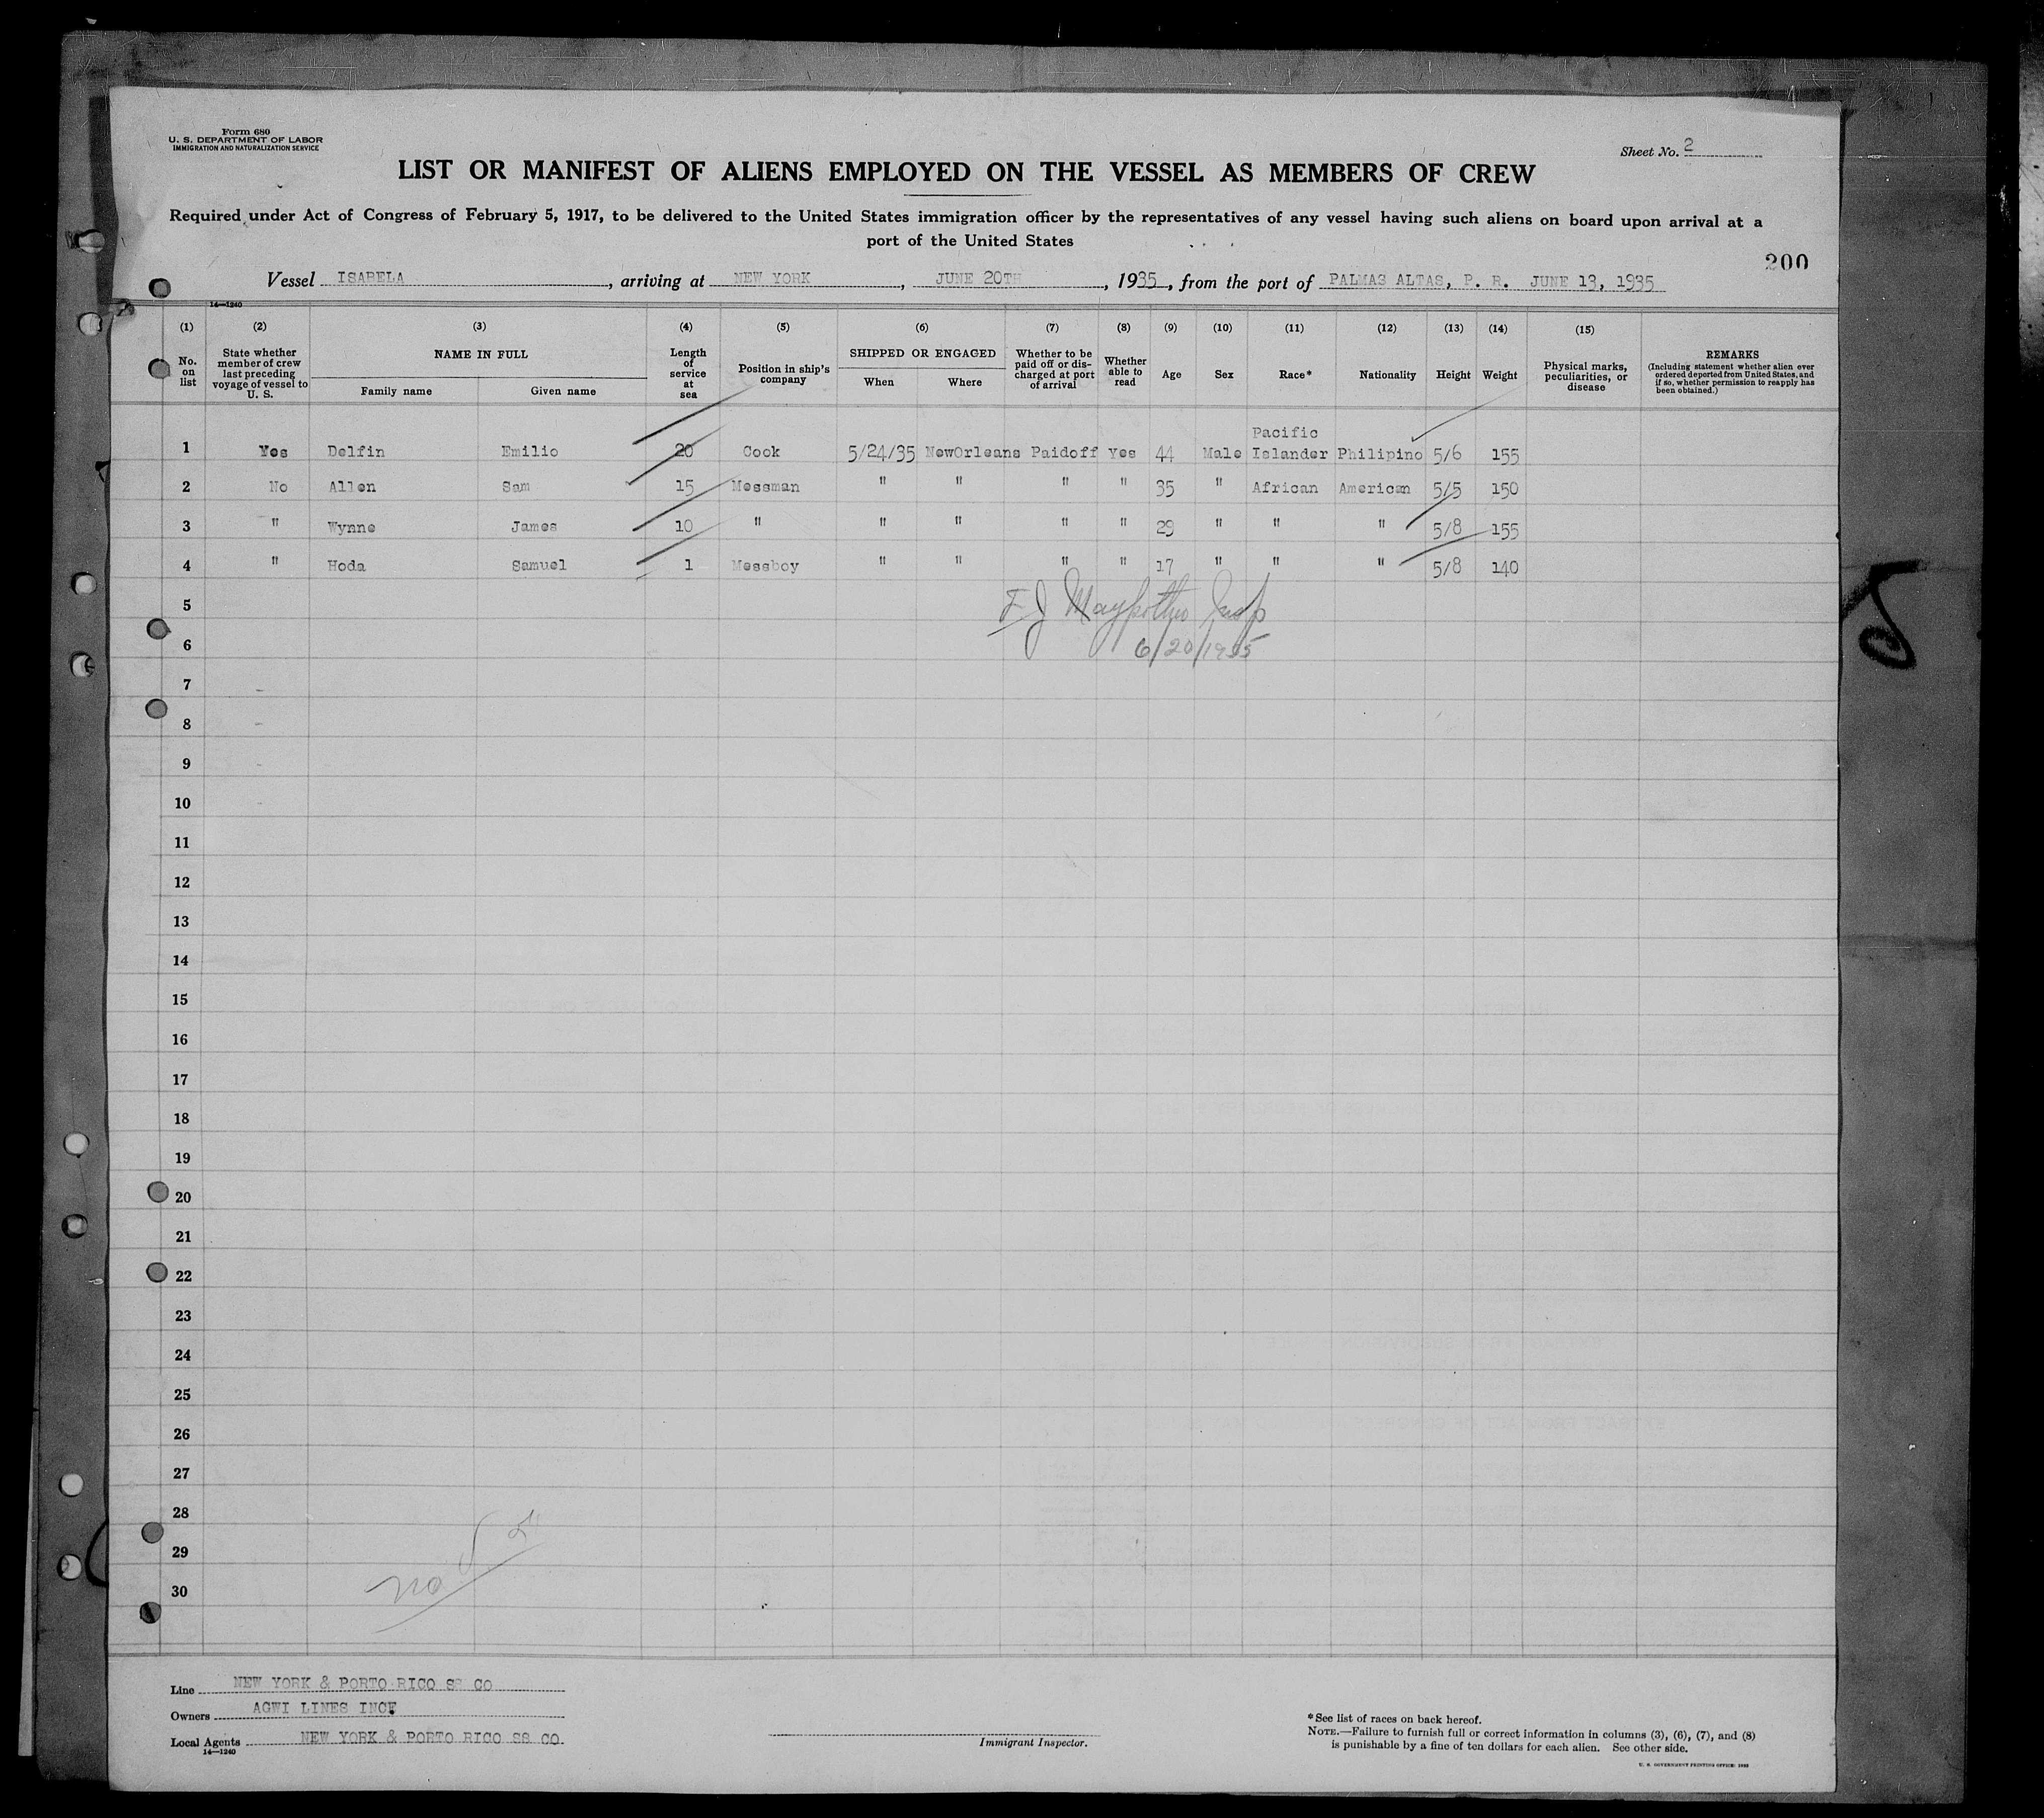 Form 680
U. S. DEPARTMENT OF LABOR
IMMIGRATION AND NATURALIZATION SERVICE
Sheet No. 2
LIST OR MANIFEST OF ALIENS EMPLOYED ON THE VESSEL AS MEMBERS OF CREW
Required under Act of Congress of February 5, 1917, to be delivered to the United States immigration officer by the representatives of any vessel having such aliens on board upon arrival at a
port of the United States
200
Vessel ISABELA, arriving at NEW YORK, JUNE 20TH, 1935, from the port of PALMAS ALTAS, P. R. JUNE 13, 1935
14—1240
(1) (2) (3) (4) (5) (6) (7) (8) (9) (10) (11) (12) (13) (14) (15)
No. on list
State whether member of crew last preceding voyage of vessel to U. S.
NAME IN FULL
Family name Given name
Length of service at sea
Position in ship's company
SHIPPED OR ENGAGED
When Where
Whether to be paid off or discharged at port of arrival
Whether able to read
Age
Sex
Race*
Nationality
Height
Weight
Physical marks, peculiarities, or disease
REMARKS
(Including statement whether alien ever ordered deported from United States, and if so, whether permission to reapply has been obtained.)
1 Yes Delfin Emilio 20 Cook 5/24/35 NewOrleans Paidoff Yes 44 Male Pacific Islander Philipino 5/6 155
2 No Allen Sam 15 Messman " " " " 35 " African American 5/5 150
3 " Wynne James 10 " " " " " 29 " " " 5/8 155
4 " Hoda Samuel 1 Messboy " " " " 17 " " " 5/8 140
5
6 6/20/1935
7
8
9
10
11
12
13
14
15
16
17
18
19
20
21
22
23
24
25
26
27
28
29
30
no
Line NEW YORK & PORTO RICO SS CO
Owners AGWI LINES INC
Local Agents NEW YORK & PORTO RICO SS CO.
14—1240
Immigrant Inspector.
*See list of races on back hereof.
NOTE.—Failure to furnish full or correct information in columns (3), (6), (7), and (8)
is punishable by a fine of ten dollars for each alien. See other side.
U. S. GOVERNMENT PRINTING OFFICE